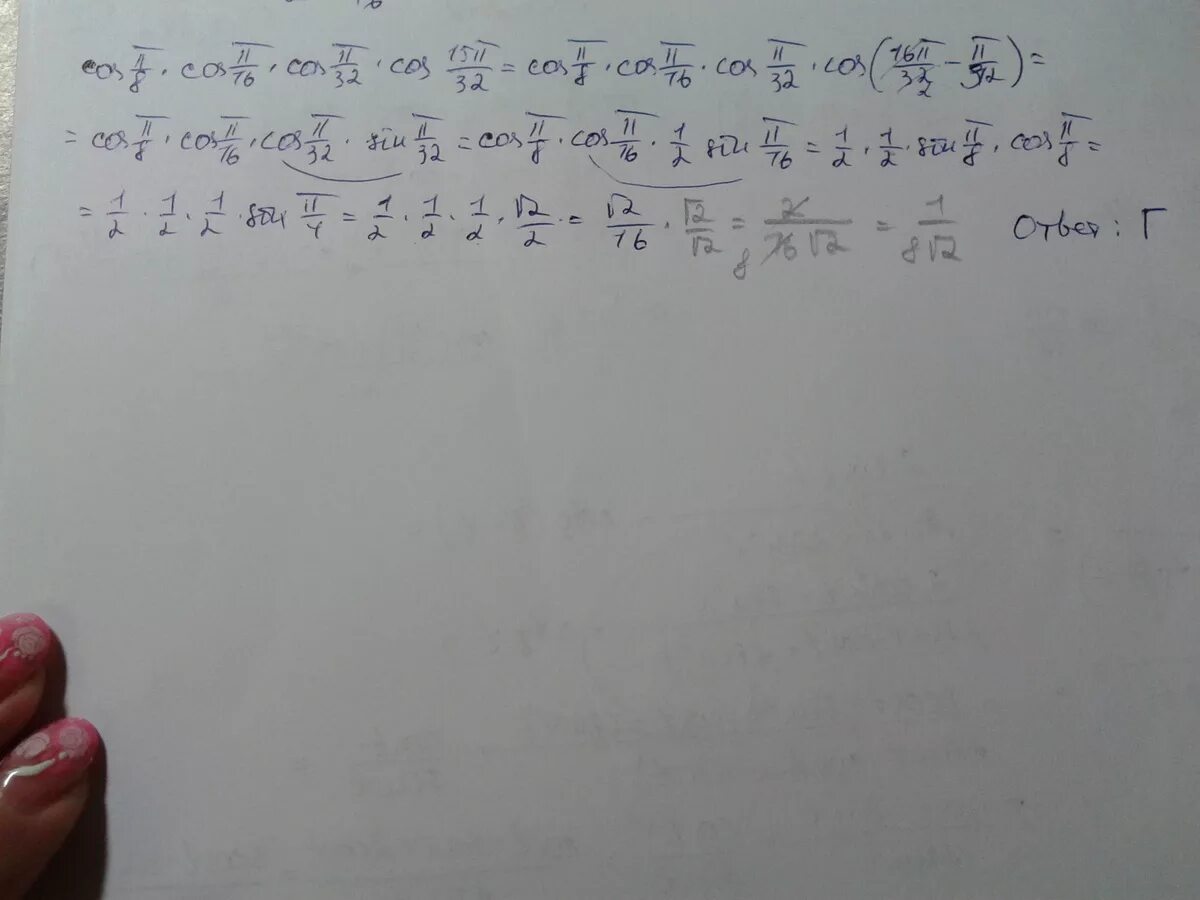 cos π/8 · cos π/16 · cos π/32 · cos 15π/32 = cos π/8 · cos π/16 · cos π/32 · cos(16π/32 - π/32) =
= cos π/8 · cos π/16 · cos π/32 · sin π/32 = cos π/8 · cos π/16 · 1/2 sin π/16 = 1/2 · 1/2 · sin π/8 · cos π/8 =
= 1/2 · 1/2 · 1/2 · sin π/4 = 1/2 · 1/2 · 1/2 · √2/2 = √2/16 · √2/√2 = 2/16√2 = 1/8√2 Ответ: Г